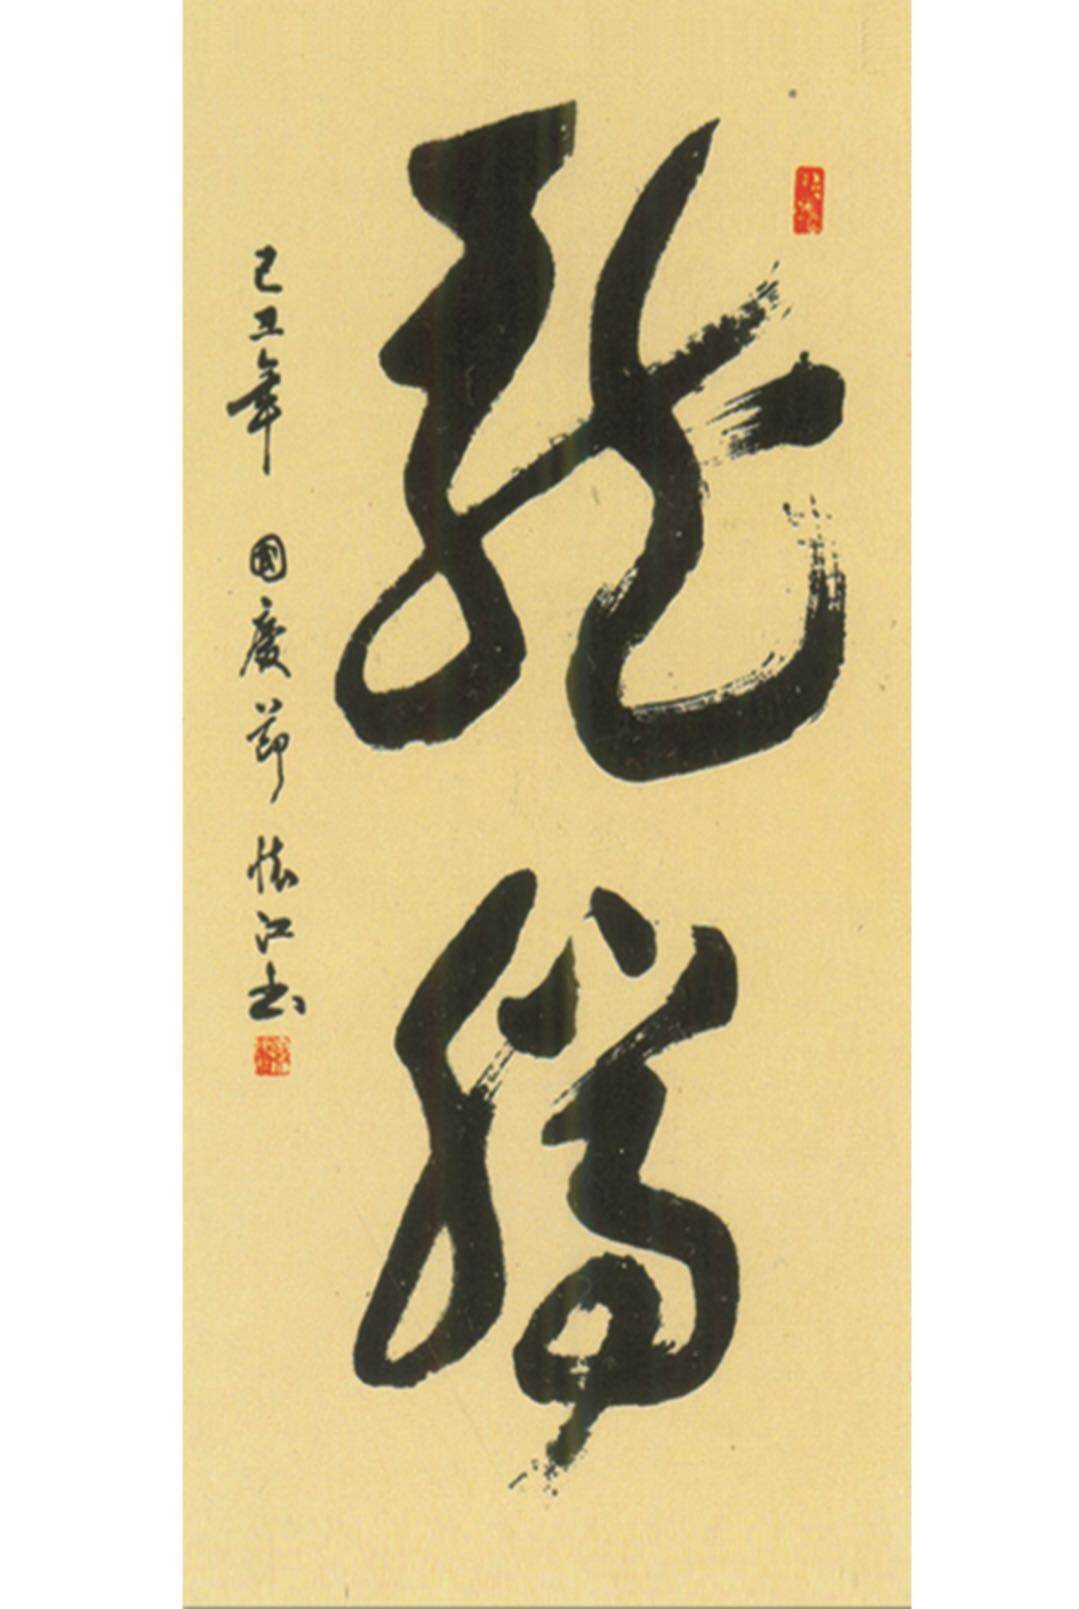 龍騰
己丑年 國慶節 懷江书